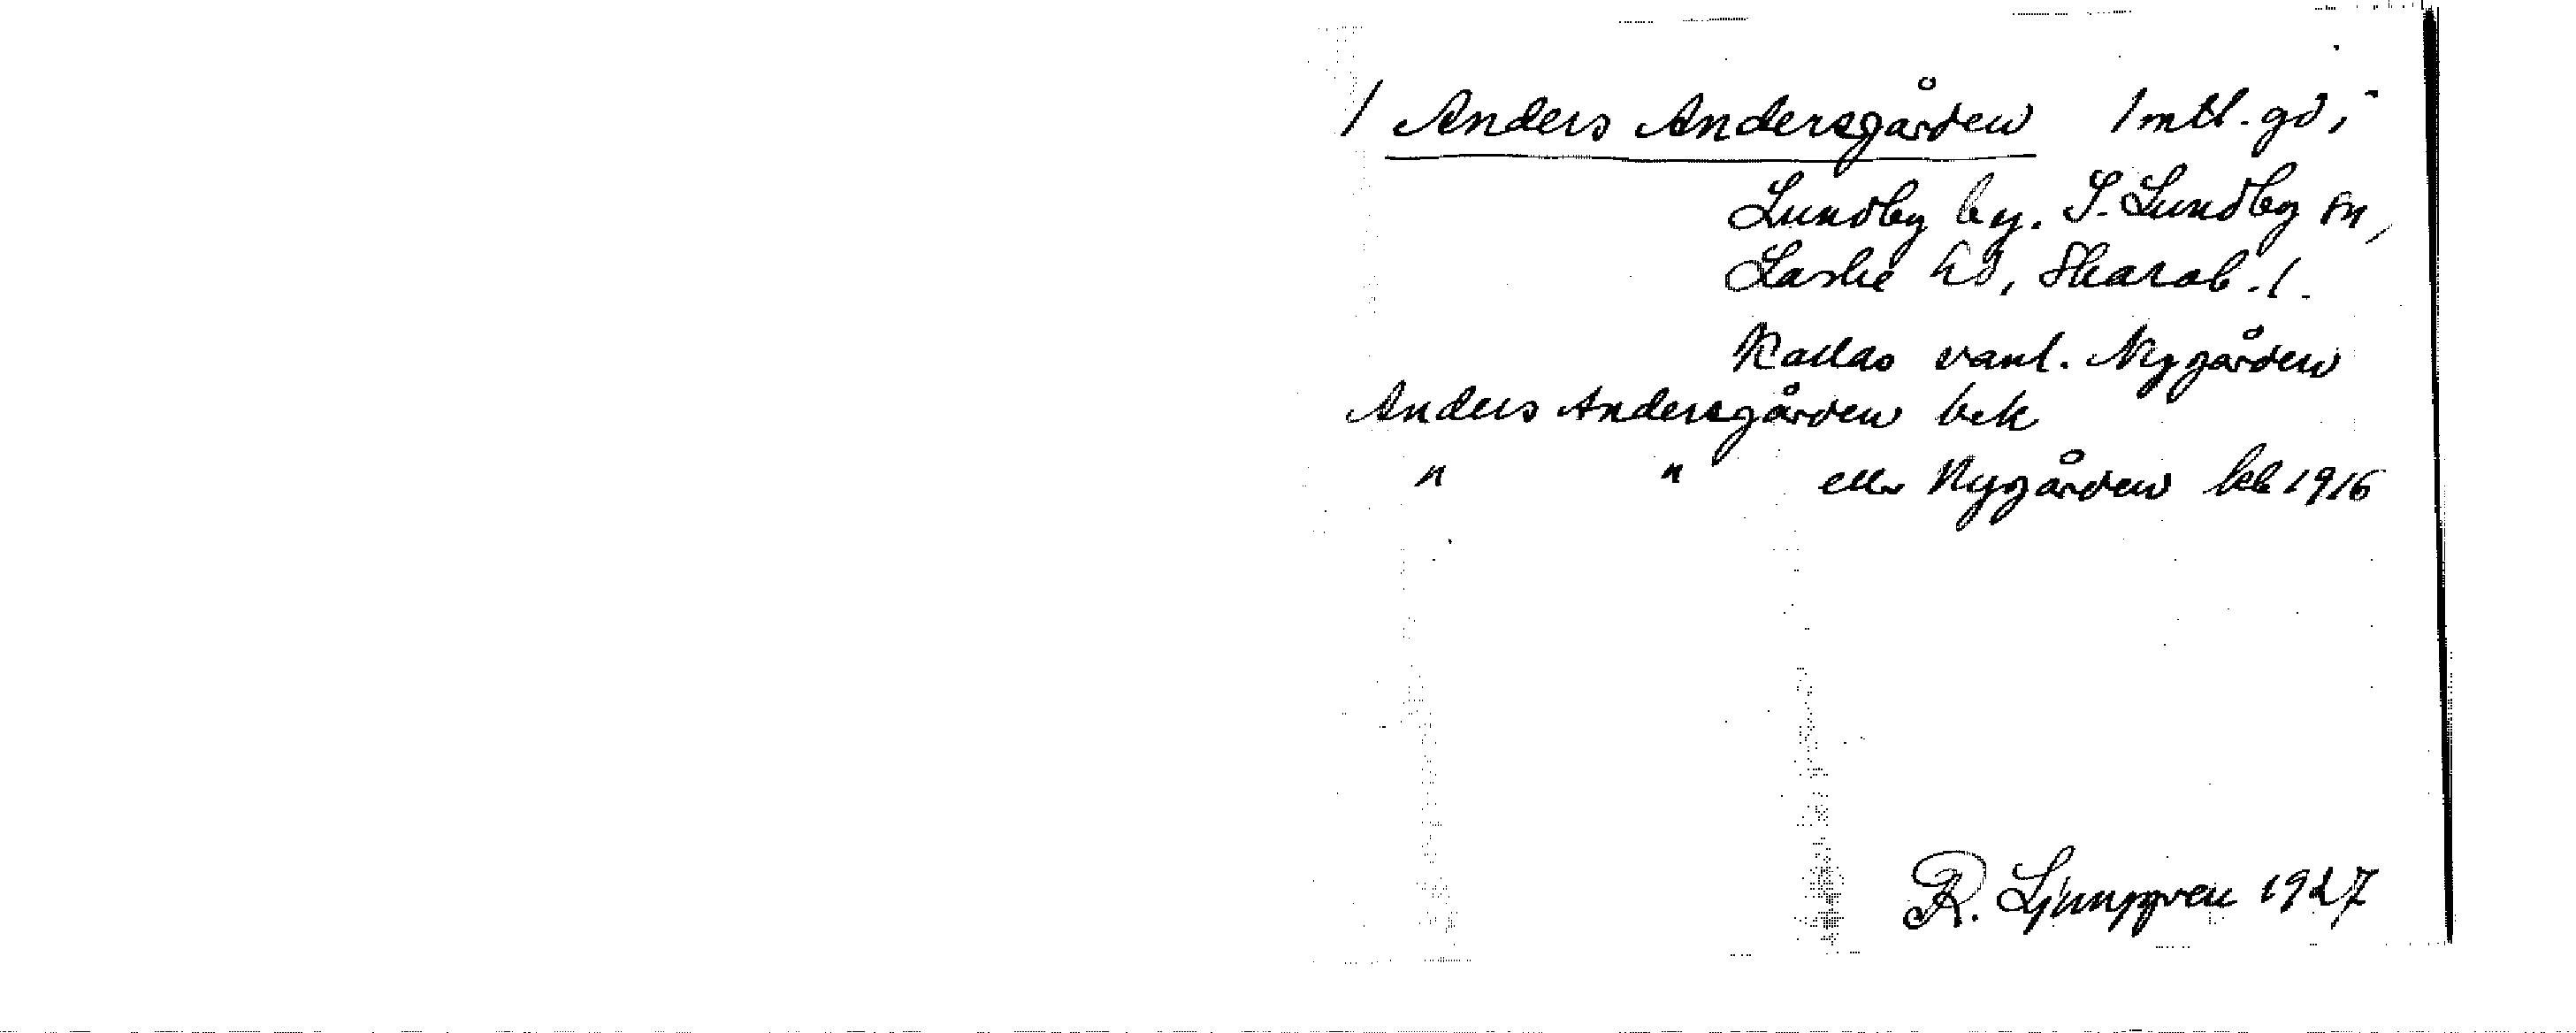 / Anders Andersgården 1 mtl. gd i
Lundby by. S. Lundby sn,
Laske hd, Skarab. l.
Kallas vanl. Nygården
Anders Andersgården bek
" " eller Nygården kb 1916
R. Ljunggren 1927